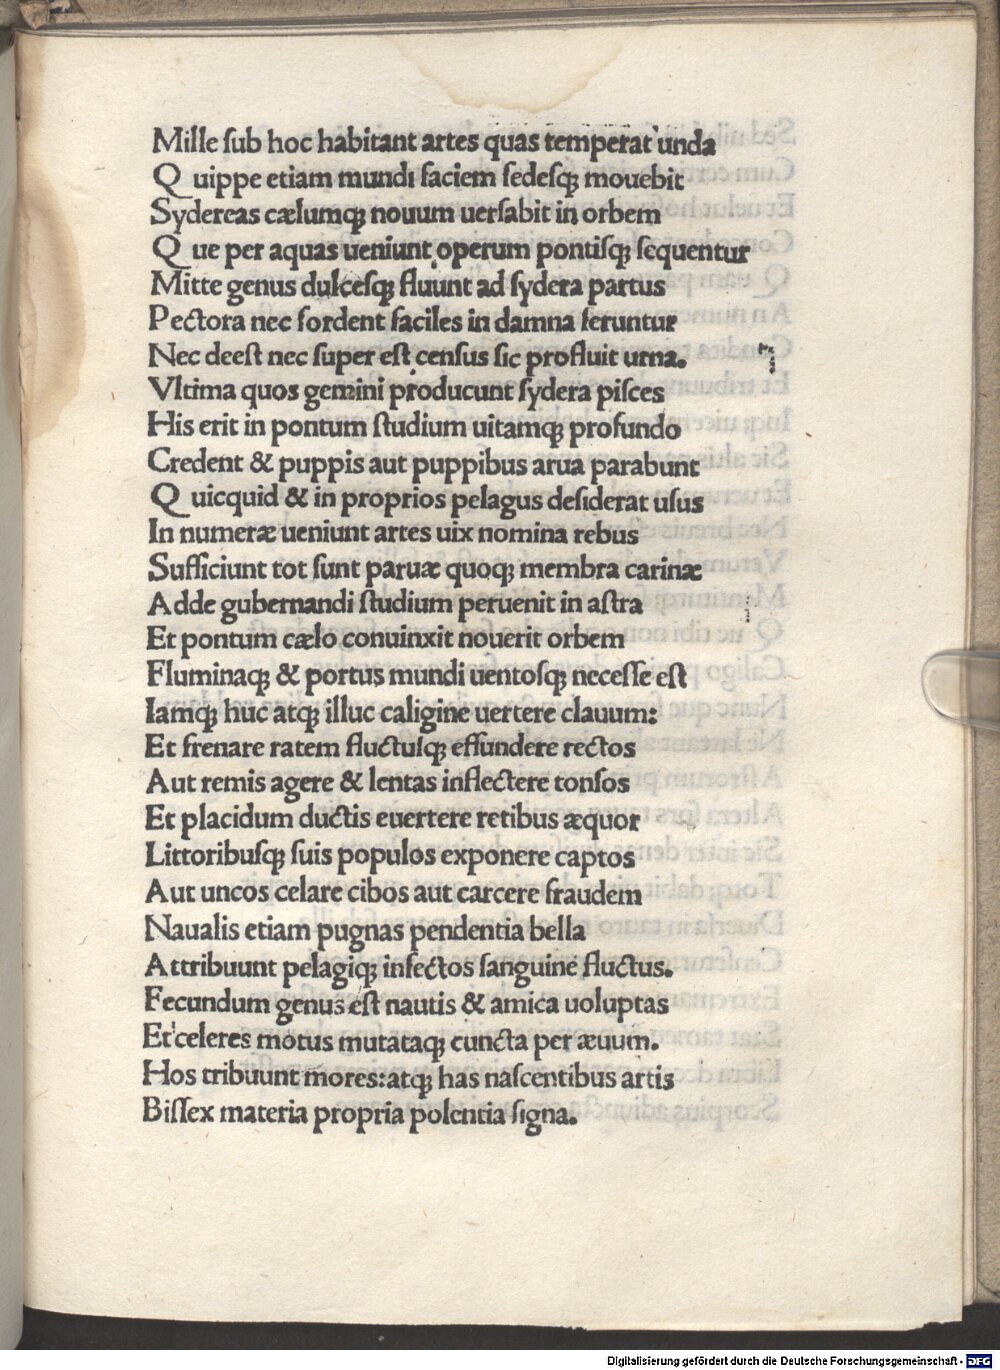 Mille ſub hoc habitant artes quas temperat unda
Q uippe etiam mundi faciem ſedeſqꝫ mouebit
Sydereas cælumqꝫ nouum uerſabit in orbem
Q ue per aquas ueniunt operum pontiſqꝫ ſequentur
Mitte genus dulceſqꝫ fluunt ad ſydera partus
Pectora nec ſordent faciles in damna feruntur
Nec deeſt nec ſuper eſt cenſus ſic profluit urna.
Vltima quos gemini producunt ſydera piſces
His erit in pontum ſtudium uitamqꝫ profundo
Credent & puppis aut puppibus arua parabunt
Q uicquid & in proprios pelagus deſiderat uſus
In numeræ ueniunt artes uix nomina rebus
Sufficiunt tot ſunt paruæ quoqꝫ membra carinæ
Adde gubernandi ſtudium peruenit in aſtra
Et pontum cælo conuinxit nouerit orbem
Fluminaqꝫ & portus mundi uentoſqꝫ neceſſe eſt
Iamqꝫ huc atqꝫ illuc caligine uertere clauum:
Et frenare ratem fluctuſqꝫ effundere rectos
Aut remis agere & lentas inflectere tonſos
Et placidum ductis euertere retibus æquor
Littoribuſqꝫ ſuis populos exponere captos
Aut uncos celare cibos aut carcere fraudem
Naualis etiam pugnas pendentia bella
Attribuunt pelagiqꝫ infectos ſanguine fluctus.
Fecundum genus eſt nautis & amica uoluptas
Et celeres motus mutataqꝫ cuncta per æuum.
Hos tribuunt mores:atqꝫ has naſcentibus artis
Biſſex materia propria polentia ſigna.
Digitalisierung gefördert durch die Deutsche Forschungsgemeinschaft - DFG